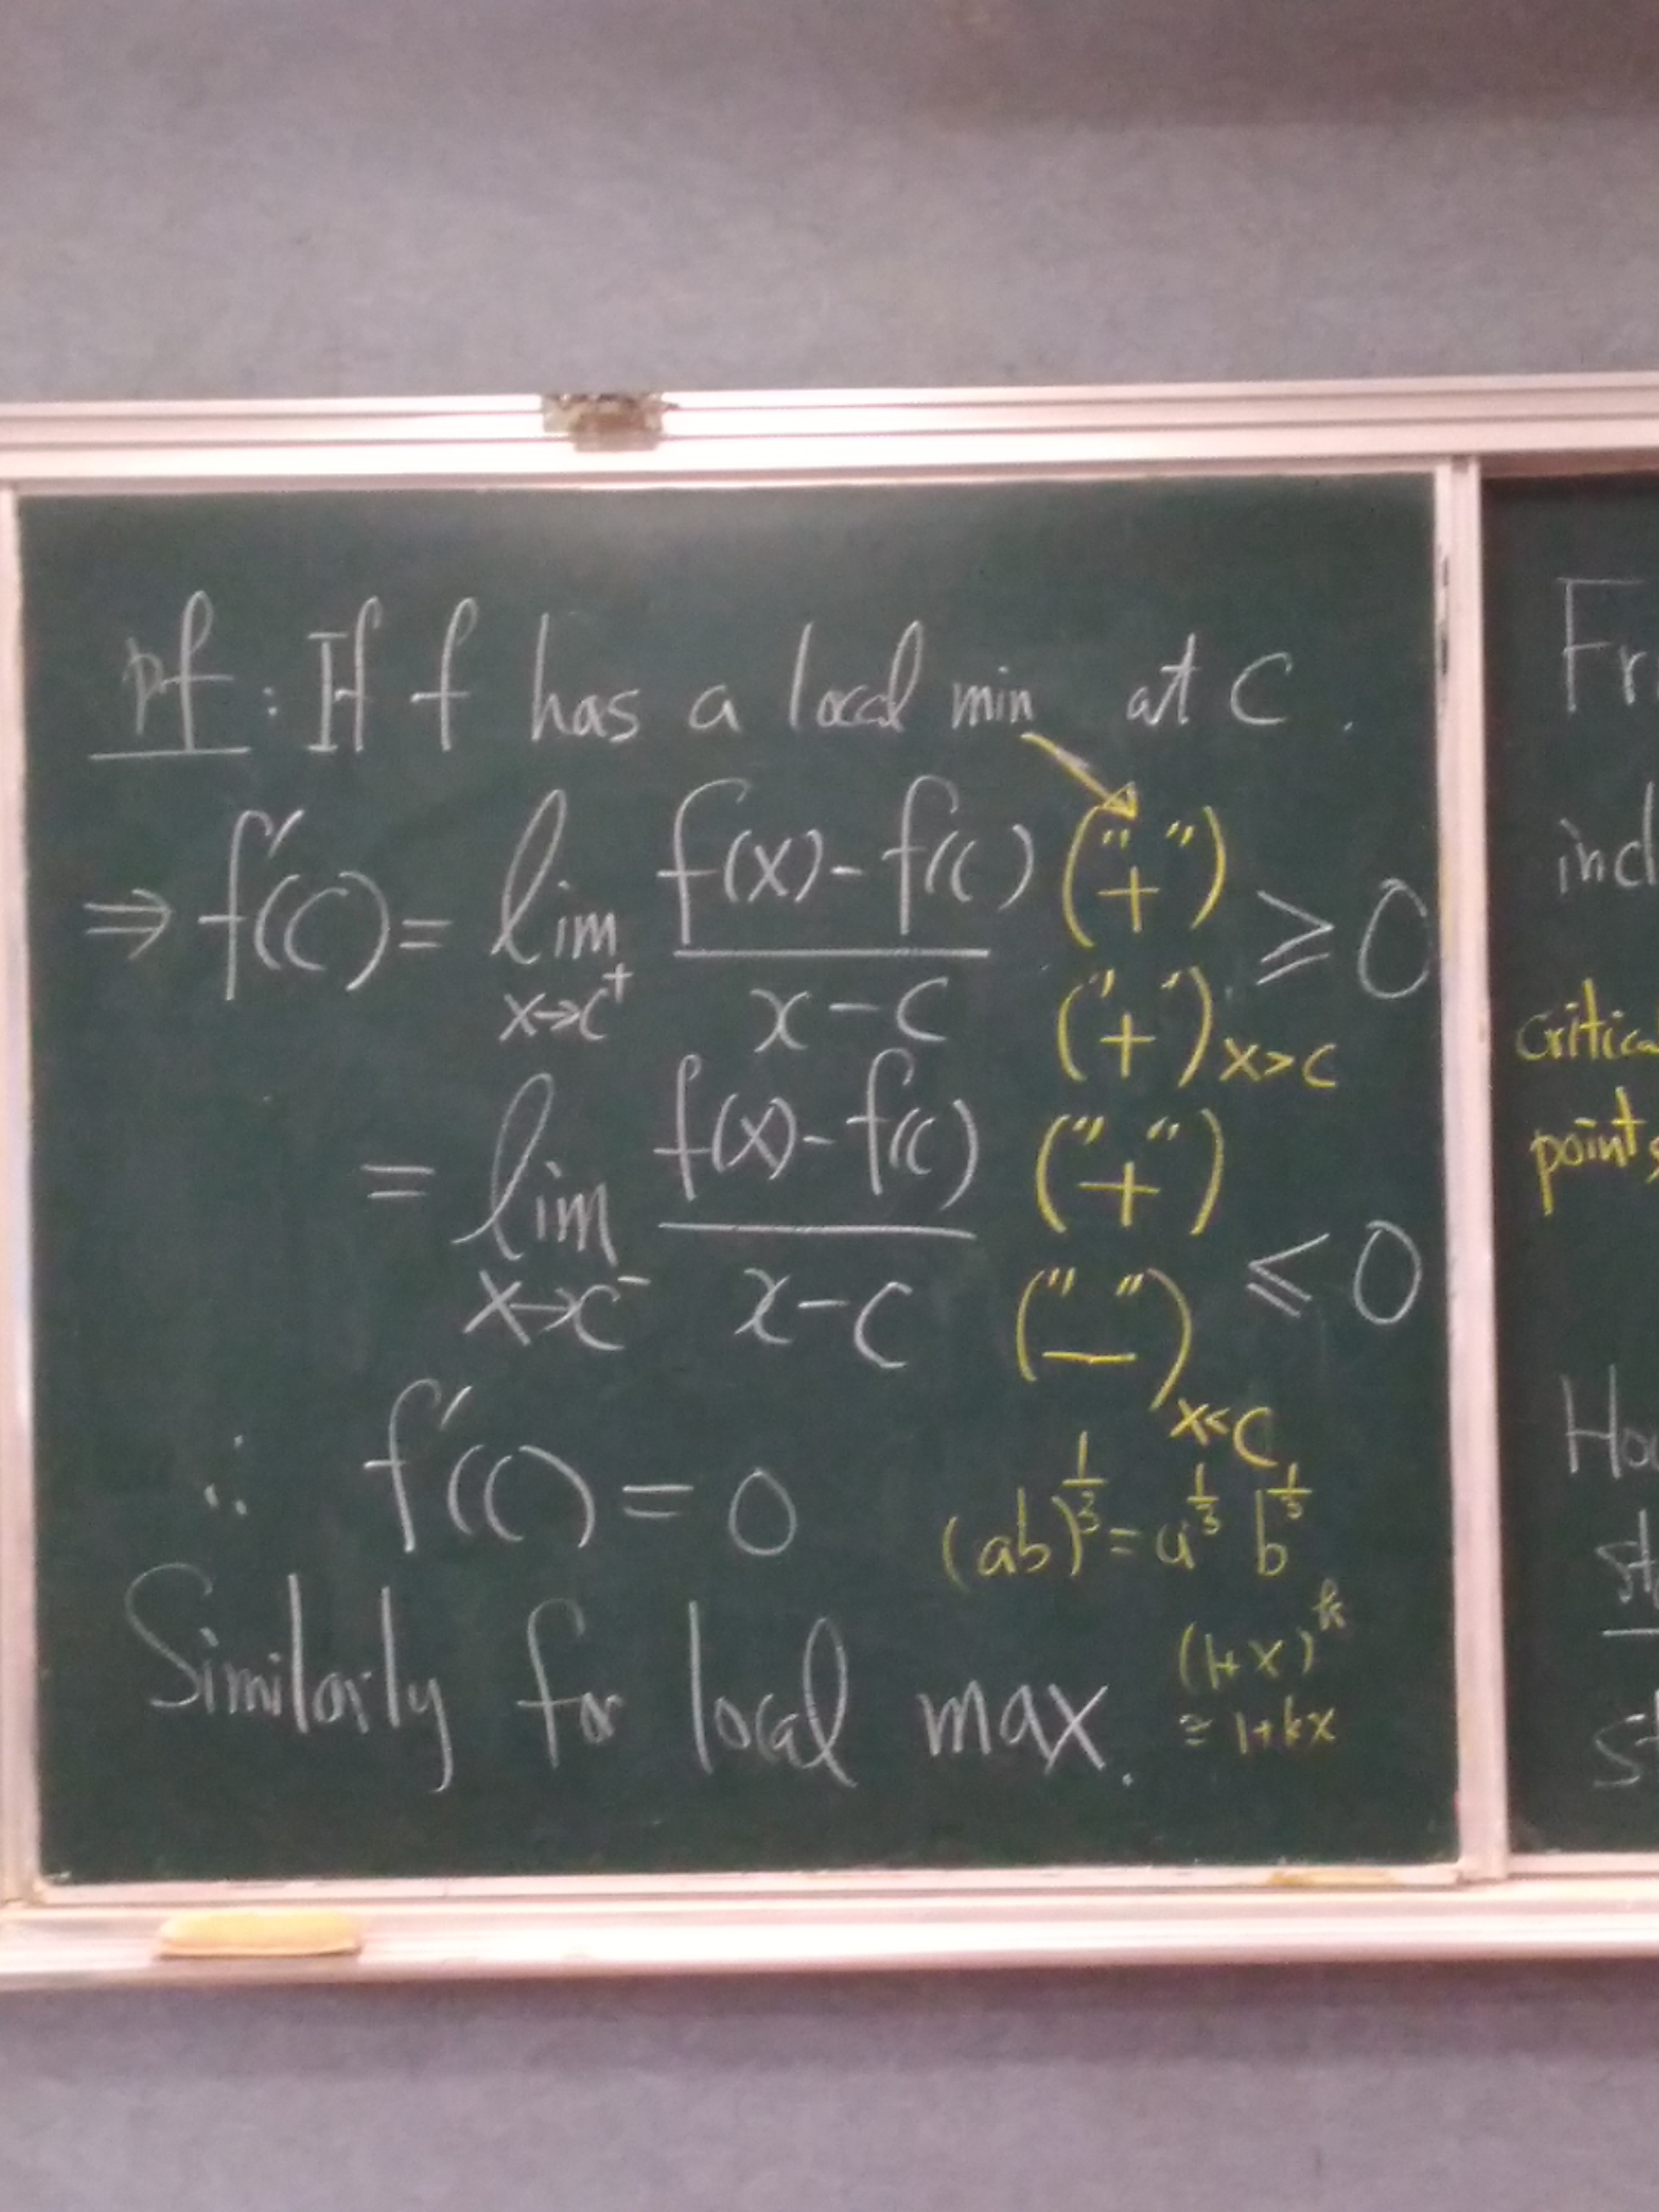 pf : If f has a local min at C.
⇒ f'(c) = lim x→c⁺ f(x)-f(c) / x-c ("+") / ("+") x>c ≥ 0
= lim x→c⁻ f(x)-f(c) / x-c ("+") / ("−") x<c ≤ 0
∴ f'(c) = 0
(ab)^1/3 = a^1/3 b^1/3
Similarly for local max.
(1+x)^k
≈ 1+kx
critica
points